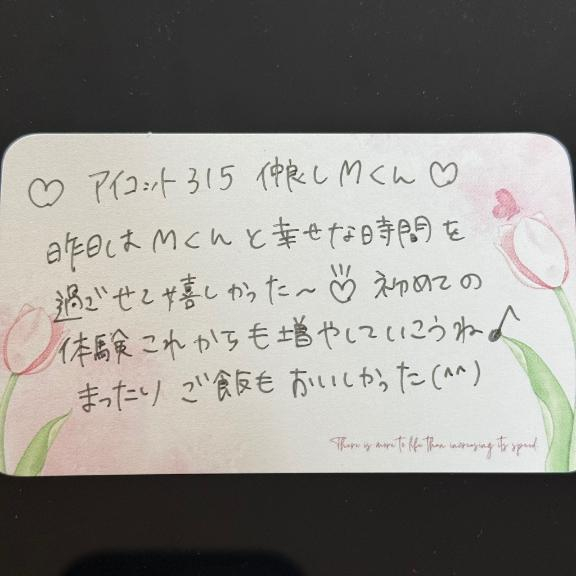 ♡ アイコット315 仲良しMくん♡
昨日はMくんと幸せな時間を
過ごせてや嬉しかった〜♡ 初めての
体験これからも増やしていこうね♪
まったり ご飯も おいしかった(^^)
There is more to life than increasing its speed.